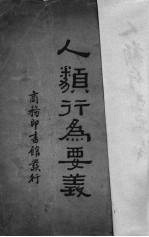 人類行為要義
商務印書館發行